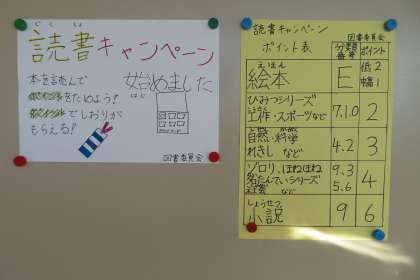 どくしょ
読書キャンペーン
始めました
はじ
本を読んで
ポイントをためよう!
ポイントでしおりが
もらえる!
図書委員会
読書キャンペーン
図書委員会
ポイント表
分類番号
ポイント
えほん
絵本
E
低2
幅1
ひみつシリーズ
工作・スポーツなど
7.1.0
2
自然・科学
れきし など
4.2
3
ゾロリ、ほねほね
名たんていシリーズ
など
9.3
5.6
4
しょうせつ
小説
9
6